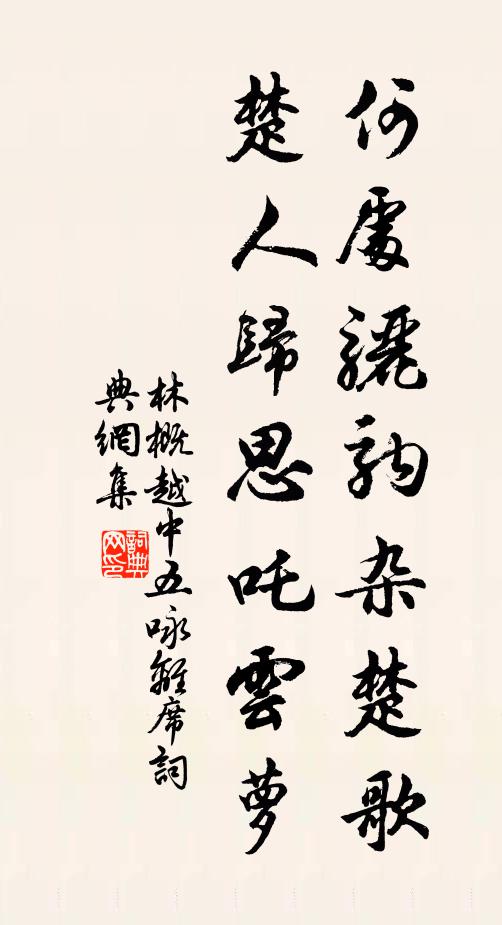 何處驪駒杂楚歌
楚人歸思吒雲夢
林概越中五咏離席詞
典網集
詞典網印